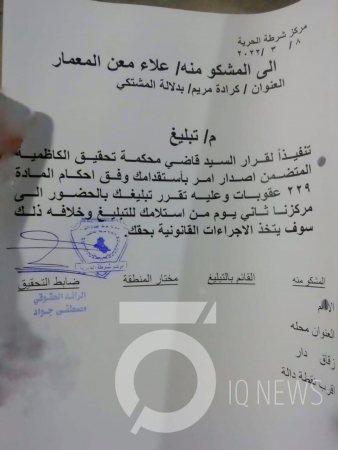 مركز شرطة الحرية
٨ / ٣ / ٢٠٢٢
الى المشكو منه/ علاء معن المعمار
العنوان / كرادة مريم/ بدلالة المشتكي
م/ تبليغ
تنفيذاً لقرار السيد قاضي محكمة تحقيق الكاظمية
المتضمن اصدار امر بأستقدامك وفق احكام المادة
٢٢٩ عقوبات وعليه تقرر تبليغك بالحضور الى
مركزنا ثاني يوم من استلامك للتبليغ وخلافه ذلك
سوف يتخذ الاجراءات القانونية بحقك
المشكو منه القائم بالتبليغ مختار المنطقة ضابط التحقيق
الاسم
العنوان محله
زقاق دار
اقرب نقطة دالة
الرائد الحقوقي
مصطفى جواد
IQ NEWS